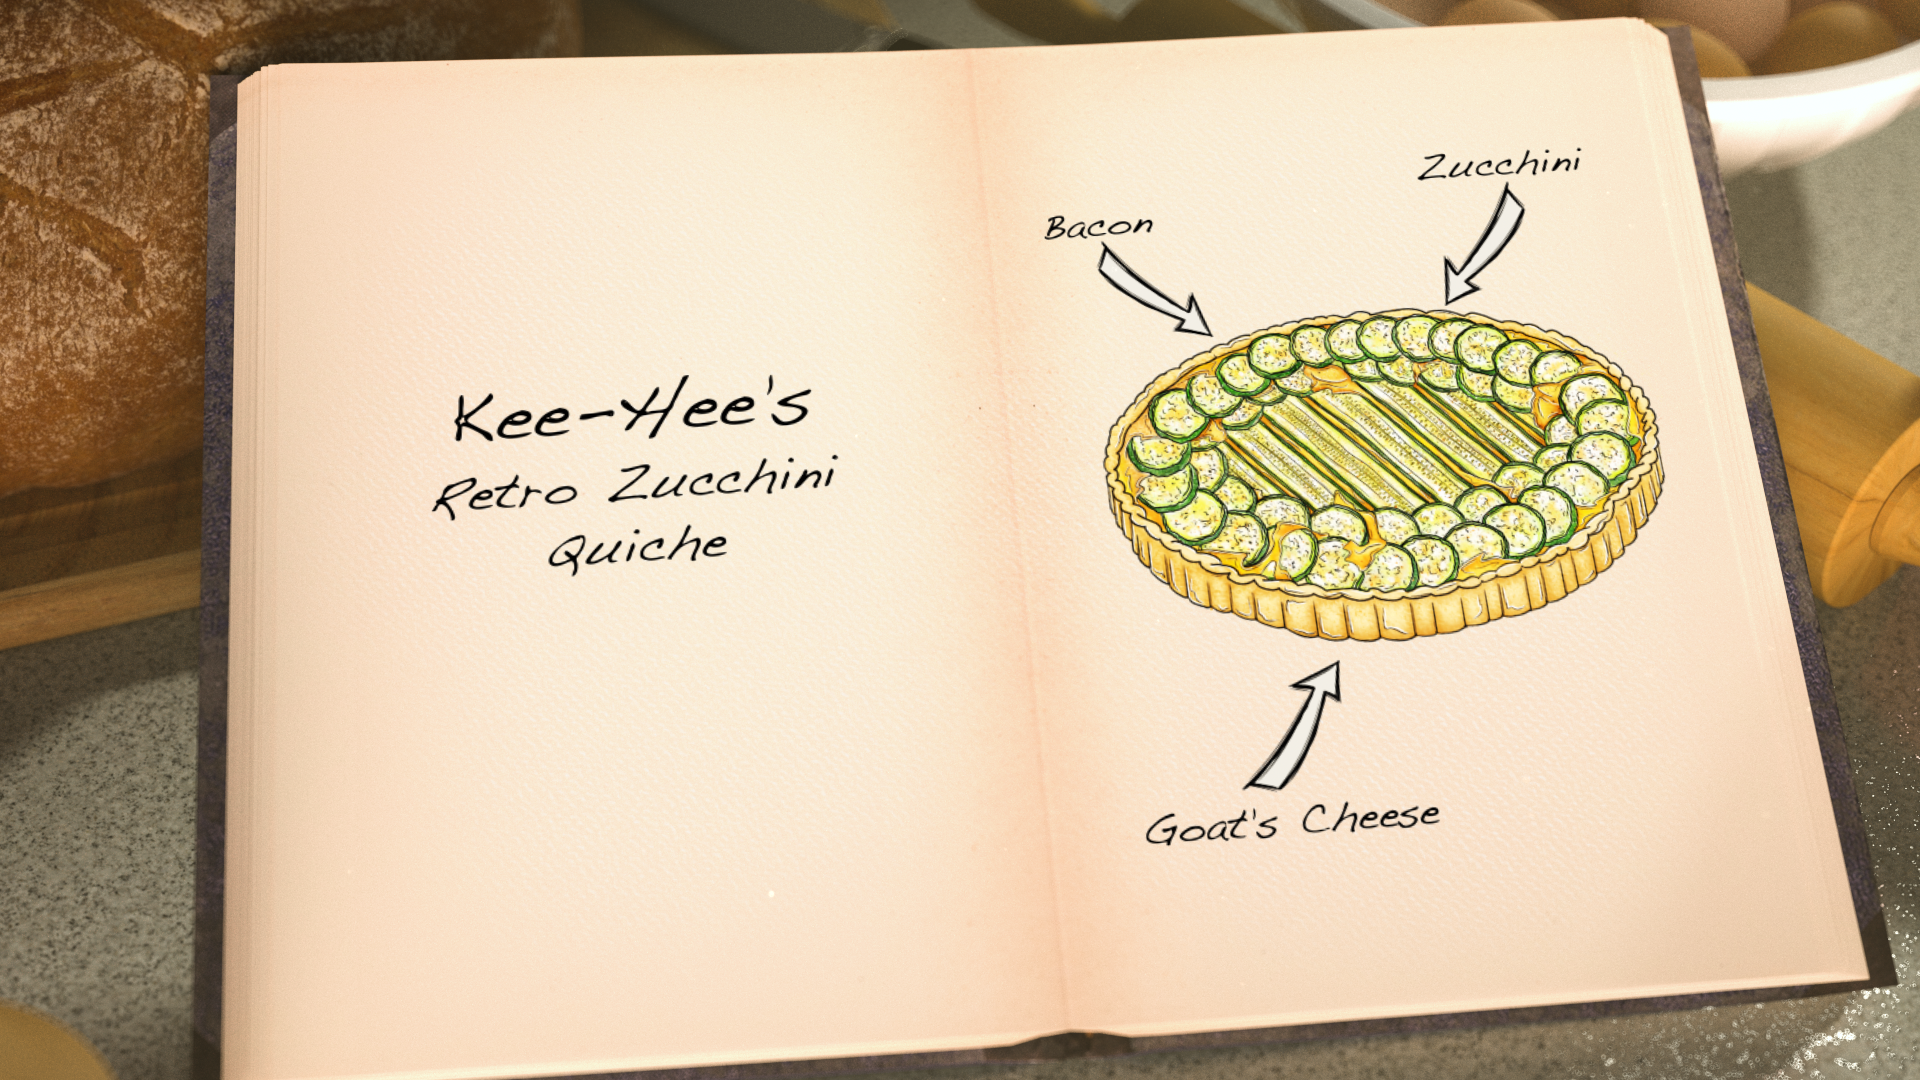 Kee-Hee's
Retro Zucchini
Quiche
Bacon
Zucchini
Goat's Cheese